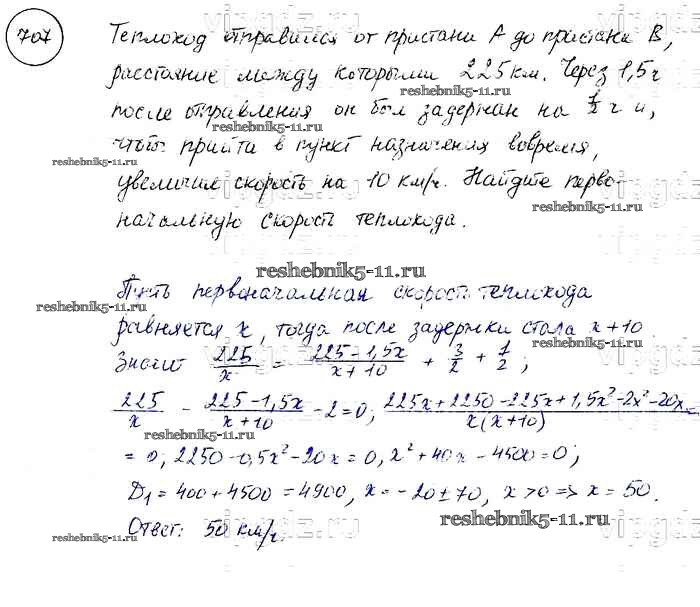 707
Теплоход отправился от пристани А до пристани В,
расстояние между которыми 225 км. Через 1,5 ч
после отправления он был задержан на 1/2 ч и,
чтобы прийти в пункт назначения вовремя,
увеличил скорость на 10 км/ч. Найдите перво-
начальную скорость теплохода.
reshebnik5-11.ru
reshebnik5-11.ru
reshebnik5-11.ru
reshebnik5-11.ru
reshebnik5-11.ru
Пусть первоначальная скорость теплохода
reshebnik5-11.ru
равняется x, тогда после задержки стала x+10
reshebnik5-11.ru
Значит 225/x = (225-1,5x)/(x+10) + 3/2 + 1/2;
225/x - (225-1,5x)/(x+10) - 2 = 0; (225x+2250-225x+1,5x²-2x²-20x)/(x(x+10)) =
= 0; 2250-0,5x²-20x=0, x²+40x-4500=0;
D₁=400+4500=4900, x=-20±70, x>0 => x=50.
Ответ: 50 км/ч.
reshebnik5-11.ru
reshebnik5-11.ru